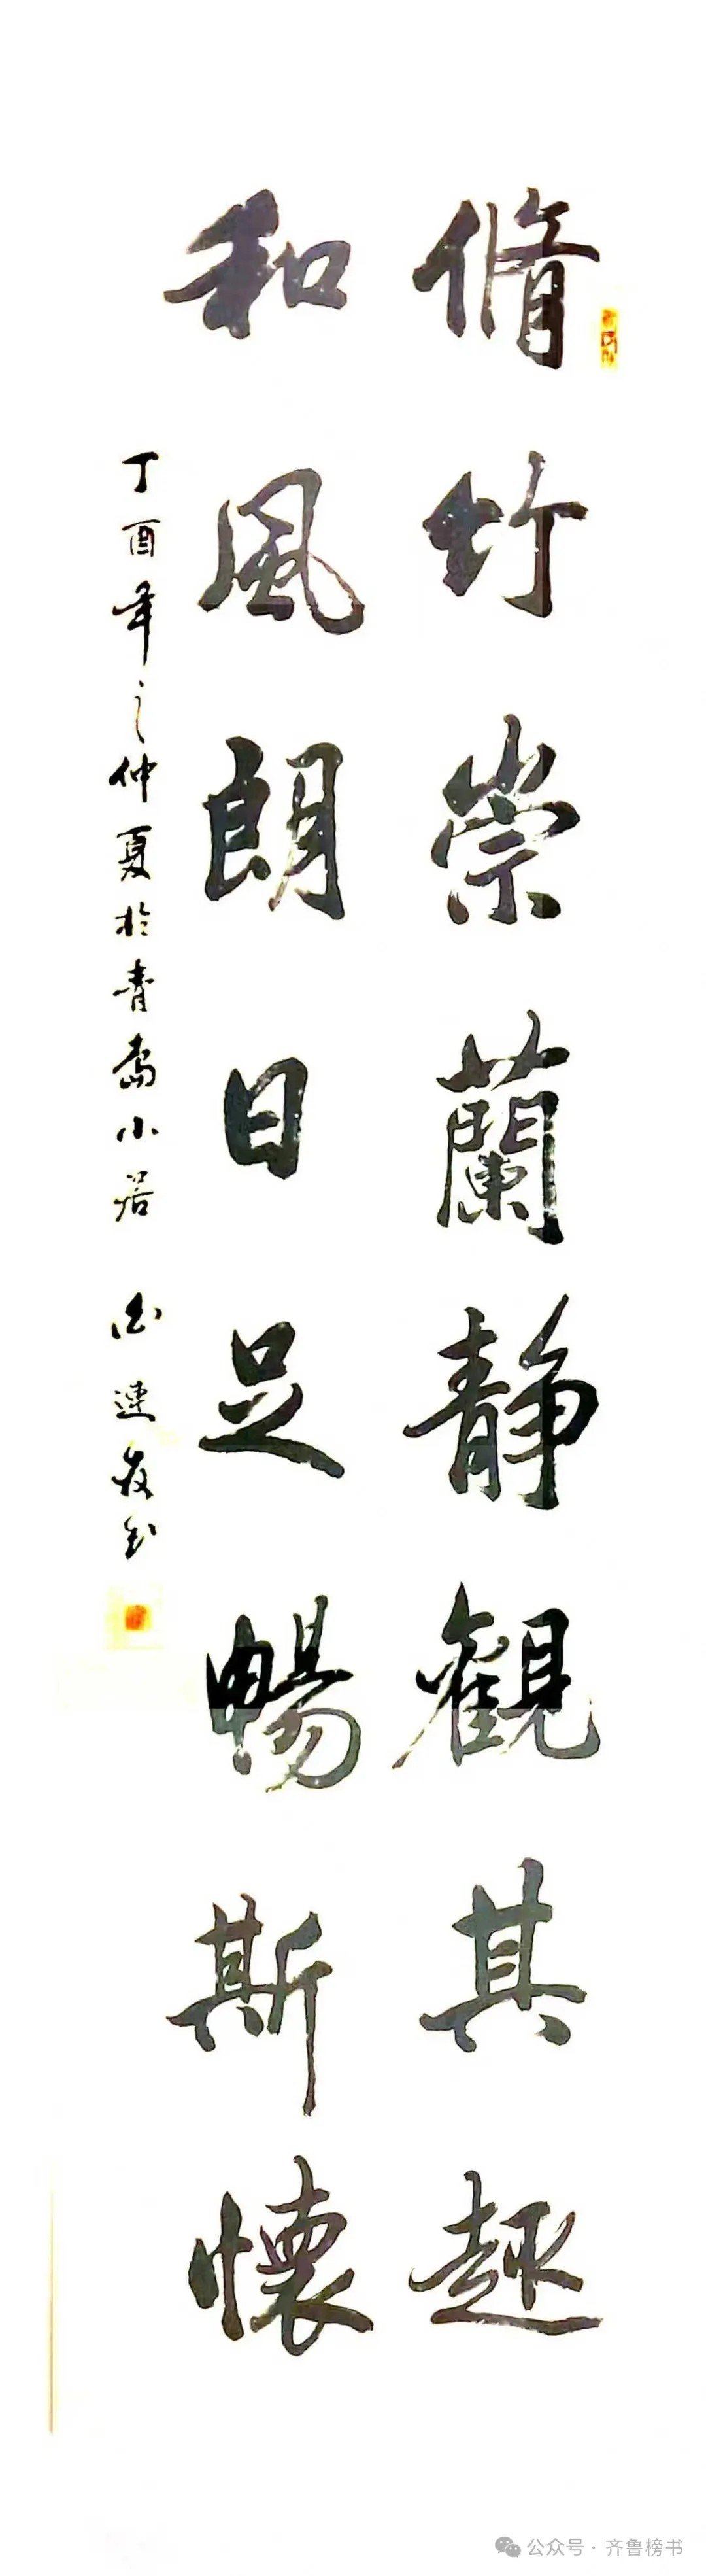 脩竹崇蘭静觀其趣
和風朗日足暢斯懷
丁酉年之仲夏於青島小居 連發書
公众号·齐鲁榜书